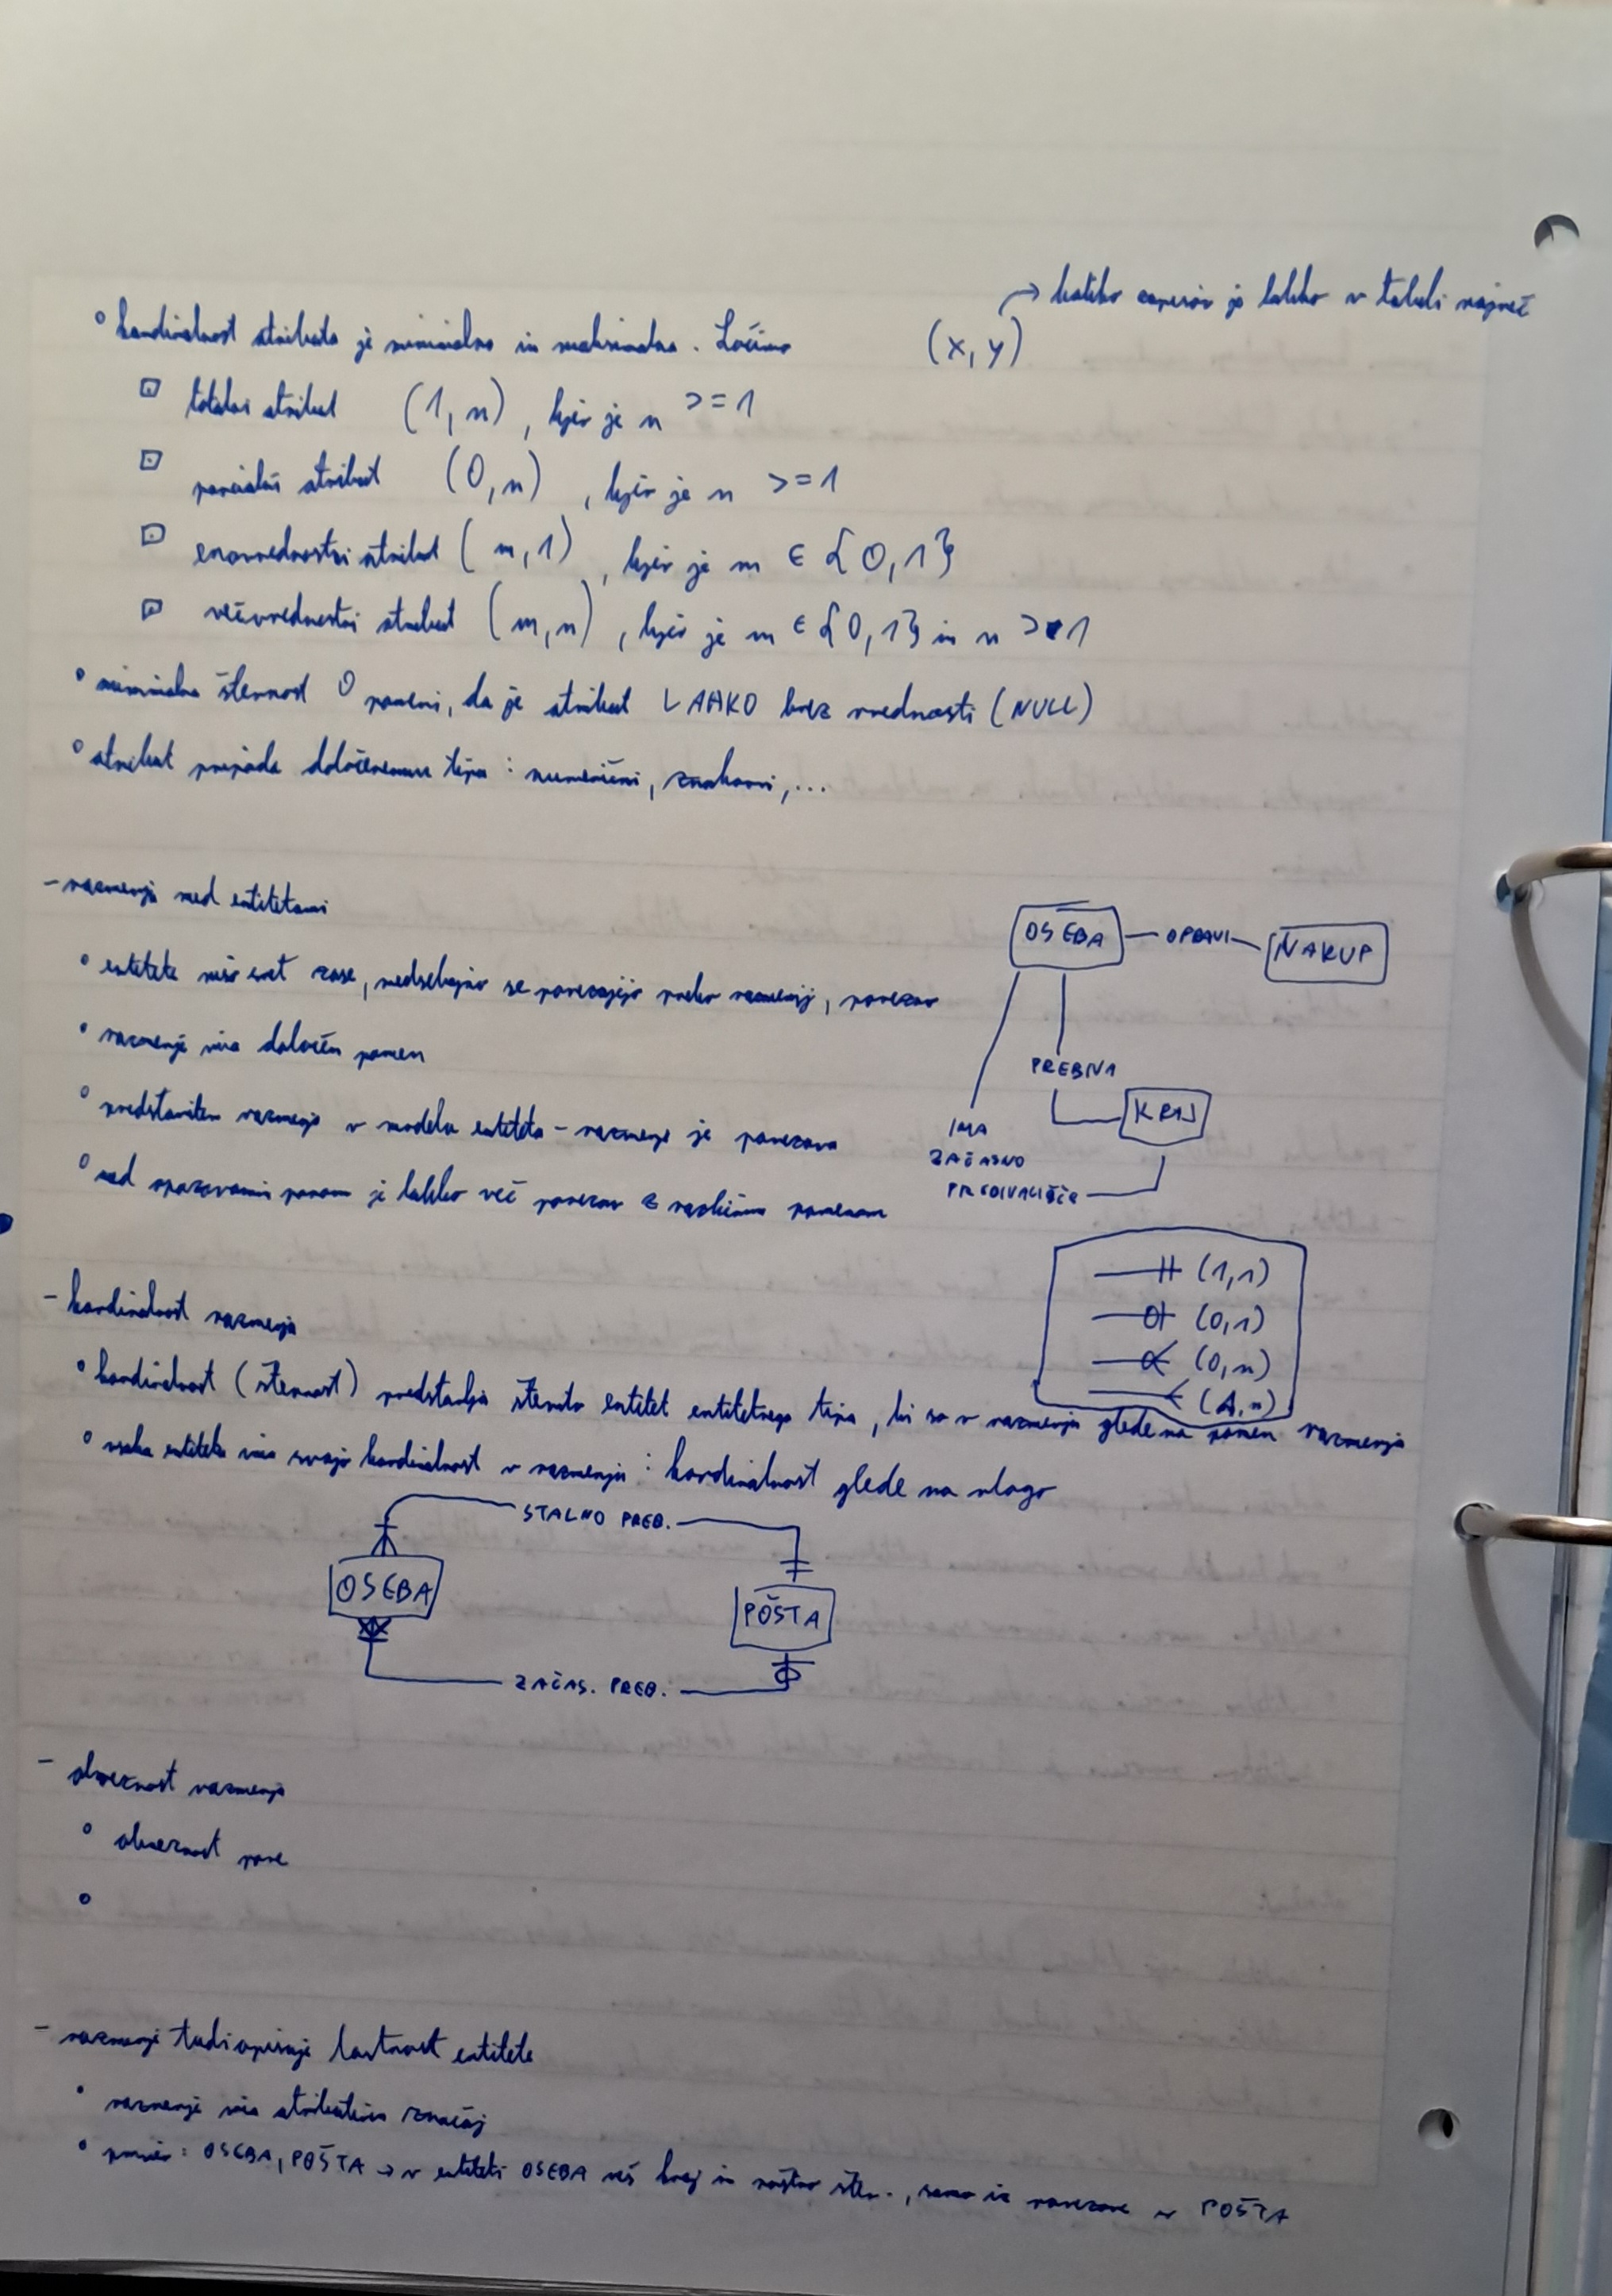 → koliko zapisov je lahko v tabeli največ
° kardinalnost atributa je minimalna in maksimalna. Ločimo (x, y)
totalni atribut (1, n), kjer je n >=1
parcialni atribut (0, n), kjer je n >=1
enovrednostni atribut (m, 1), kjer je m ∈ {0, 1}
večvrednostni atribut (m, n), kjer je m ∈ {0, 1} in n > 1
° minimalna števnost 0 pomeni, da je atribut LAHKO brez vrednosti (NULL)
° atribut pripada določenemu tipu: numerični, znakovni, ...
- razmerja med entitetami
OSEBA OPRAVI NAKUP
° entitete niso svet zase, medsebojno se povezujejo preko razmerij, povezav
° razmerje ima določen pomen
PREBIVA
KRAJ
° predstavitev razmerja v modelu entiteta - razmerje je povezava
IMA
ZAČASNO
PREBIVALIŠČE
° med opazovanim parom je lahko več povezav z različnim pomenom
(1,1)
(0,1)
(0,n)
(1,n)
- kardinalnost razmerja
° kardinalnost (števnost) predstavlja število entitet entitetnega tipa, ki so v razmerju glede na pomen razmerja
° vsaka entiteta ima svojo kardinalnost v razmerju: kardinalnost glede na vlogo
STALNO PREB.
OSEBA
POŠTA
ZAČAS. PREB.
- obveznost razmerja
° obveznost pove
°
- razmerje tudi opisuje lastnost entitete
° razmerje ima atributivni značaj
° primer: OSEBA, POŠTA → v entiteti OSEBA kraj in štev., samo iz povezave v POŠTA